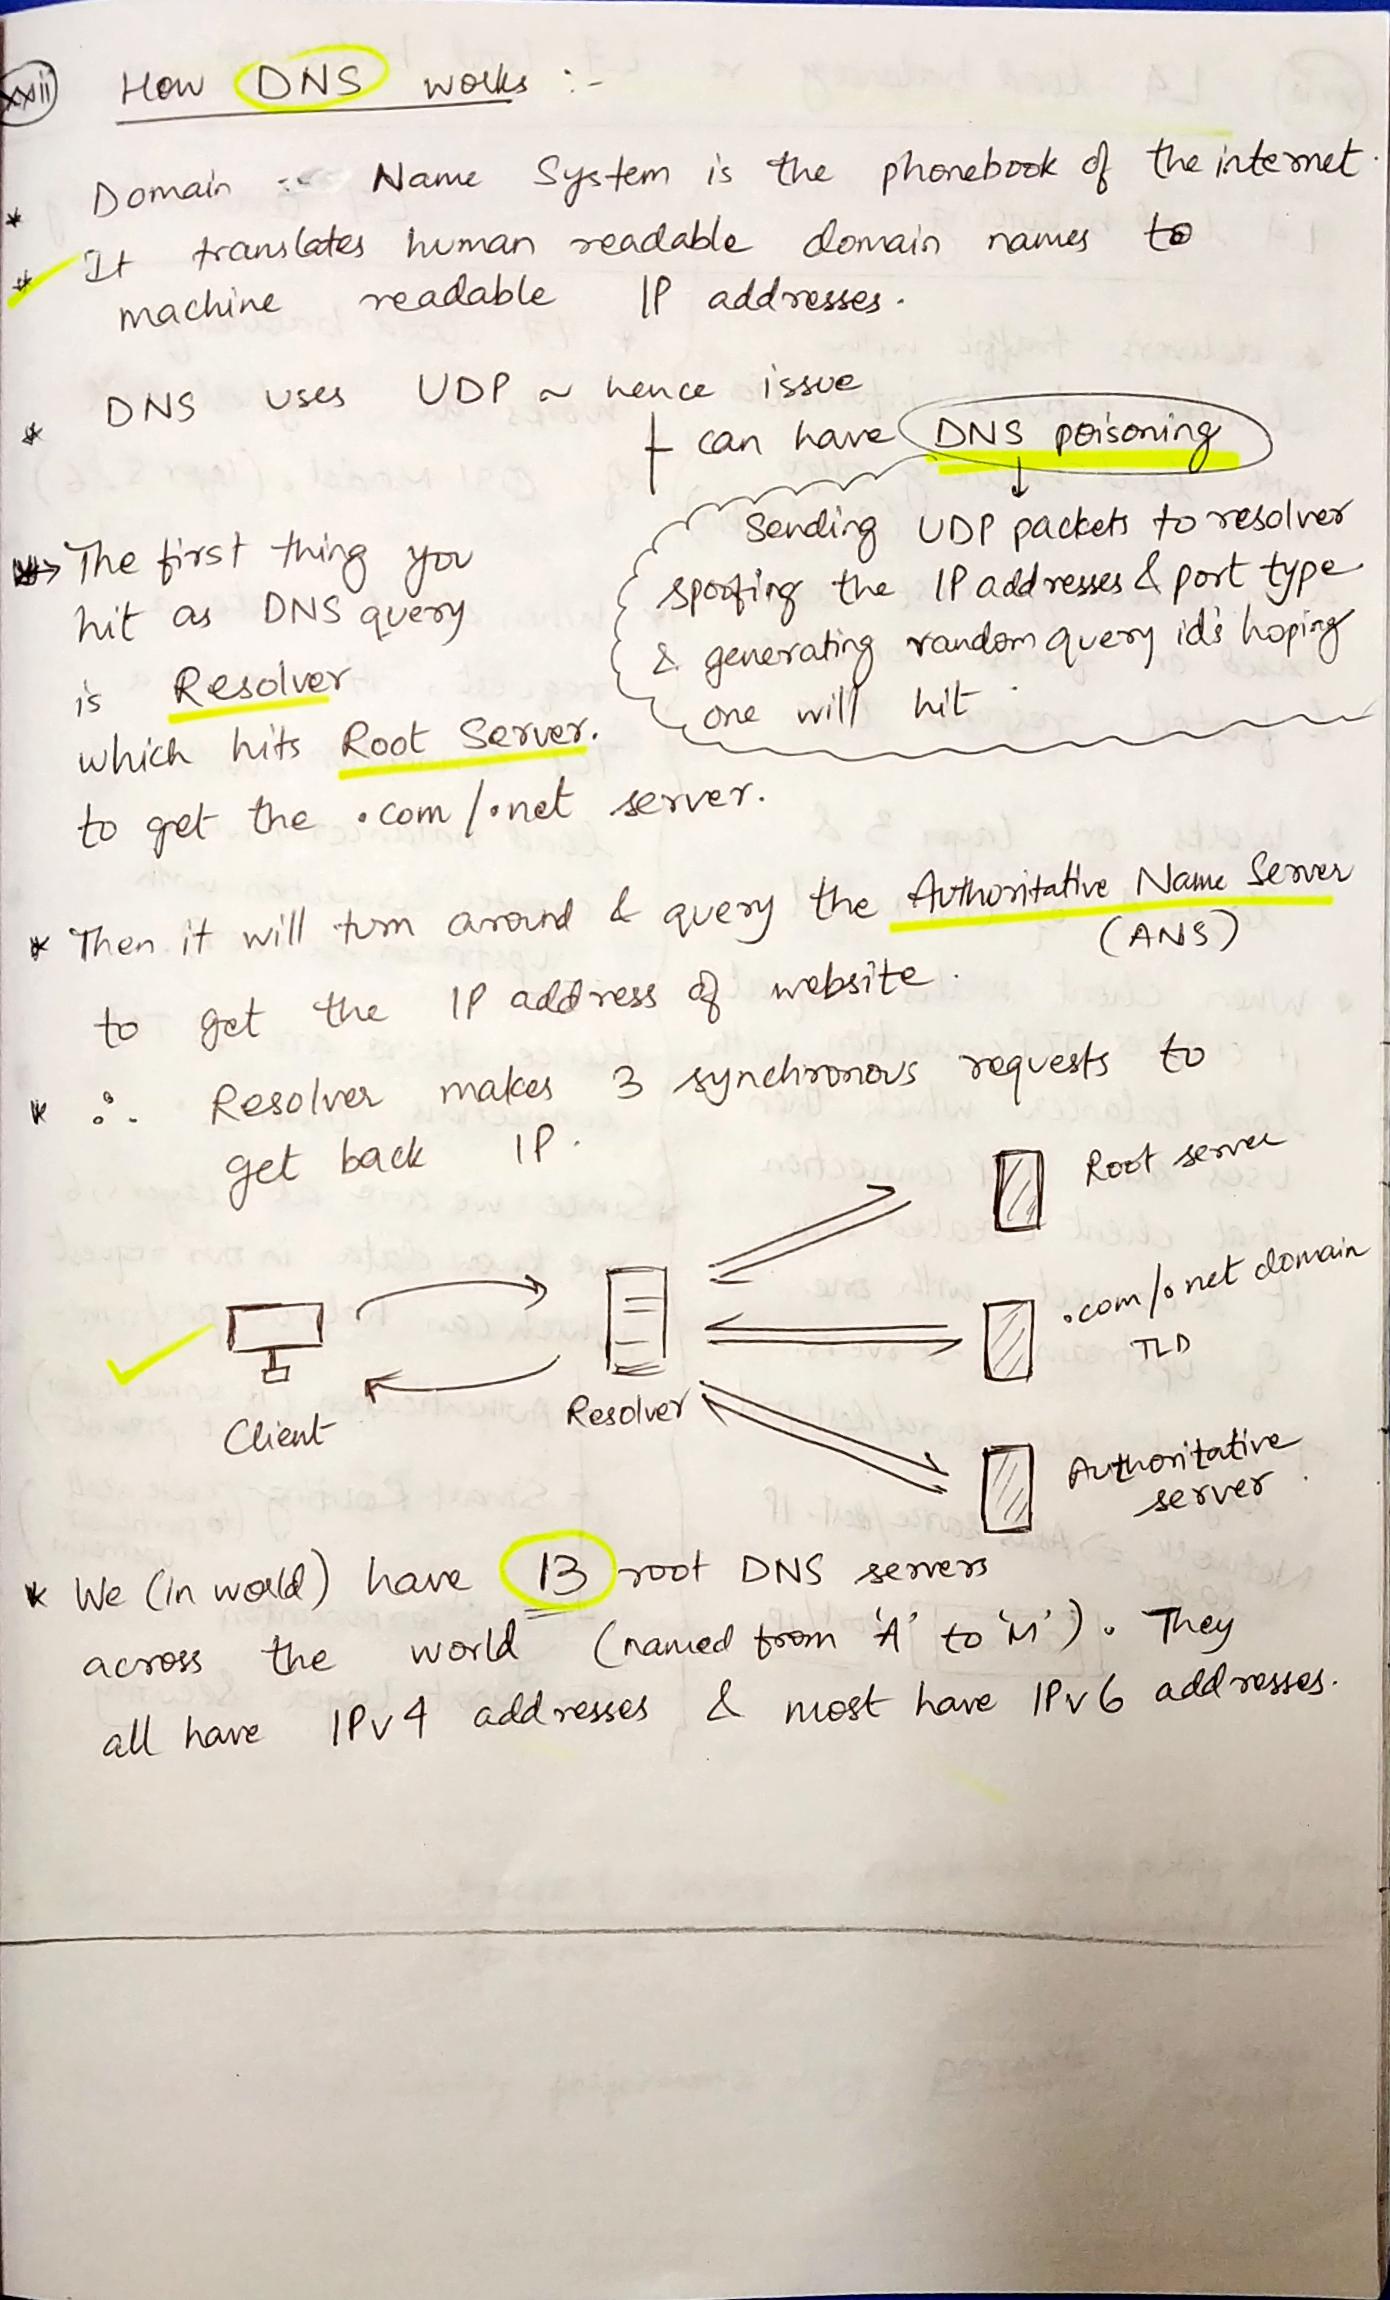 xxii
How DNS works :-
* Domain Name System is the phonebook of the internet.
* It translates human readable domain names to
machine readable IP addresses.
* DNS uses UDP ~ hence issue
can have DNS poisoning
Sending UDP packets to resolver
spoofing the IP addresses & port type
& generating random query id's hoping
one will hit.
The first thing you
hit as DNS query
is Resolver
which hits Root Server.
to get the .com/.net server.
* Then it will turn around & query the Authoritative Name Server
(ANS)
to get the IP address of website.
* ∴ Resolver makes 3 synchronous requests to
get back IP.
Root server
.com/.net domain
TLD
Client
Resolver
Authoritative
server.
* We (in world) have 13 root DNS servers
across the world (named from 'A' to 'M'). They
all have IPv4 addresses & most have IPv6 addresses.